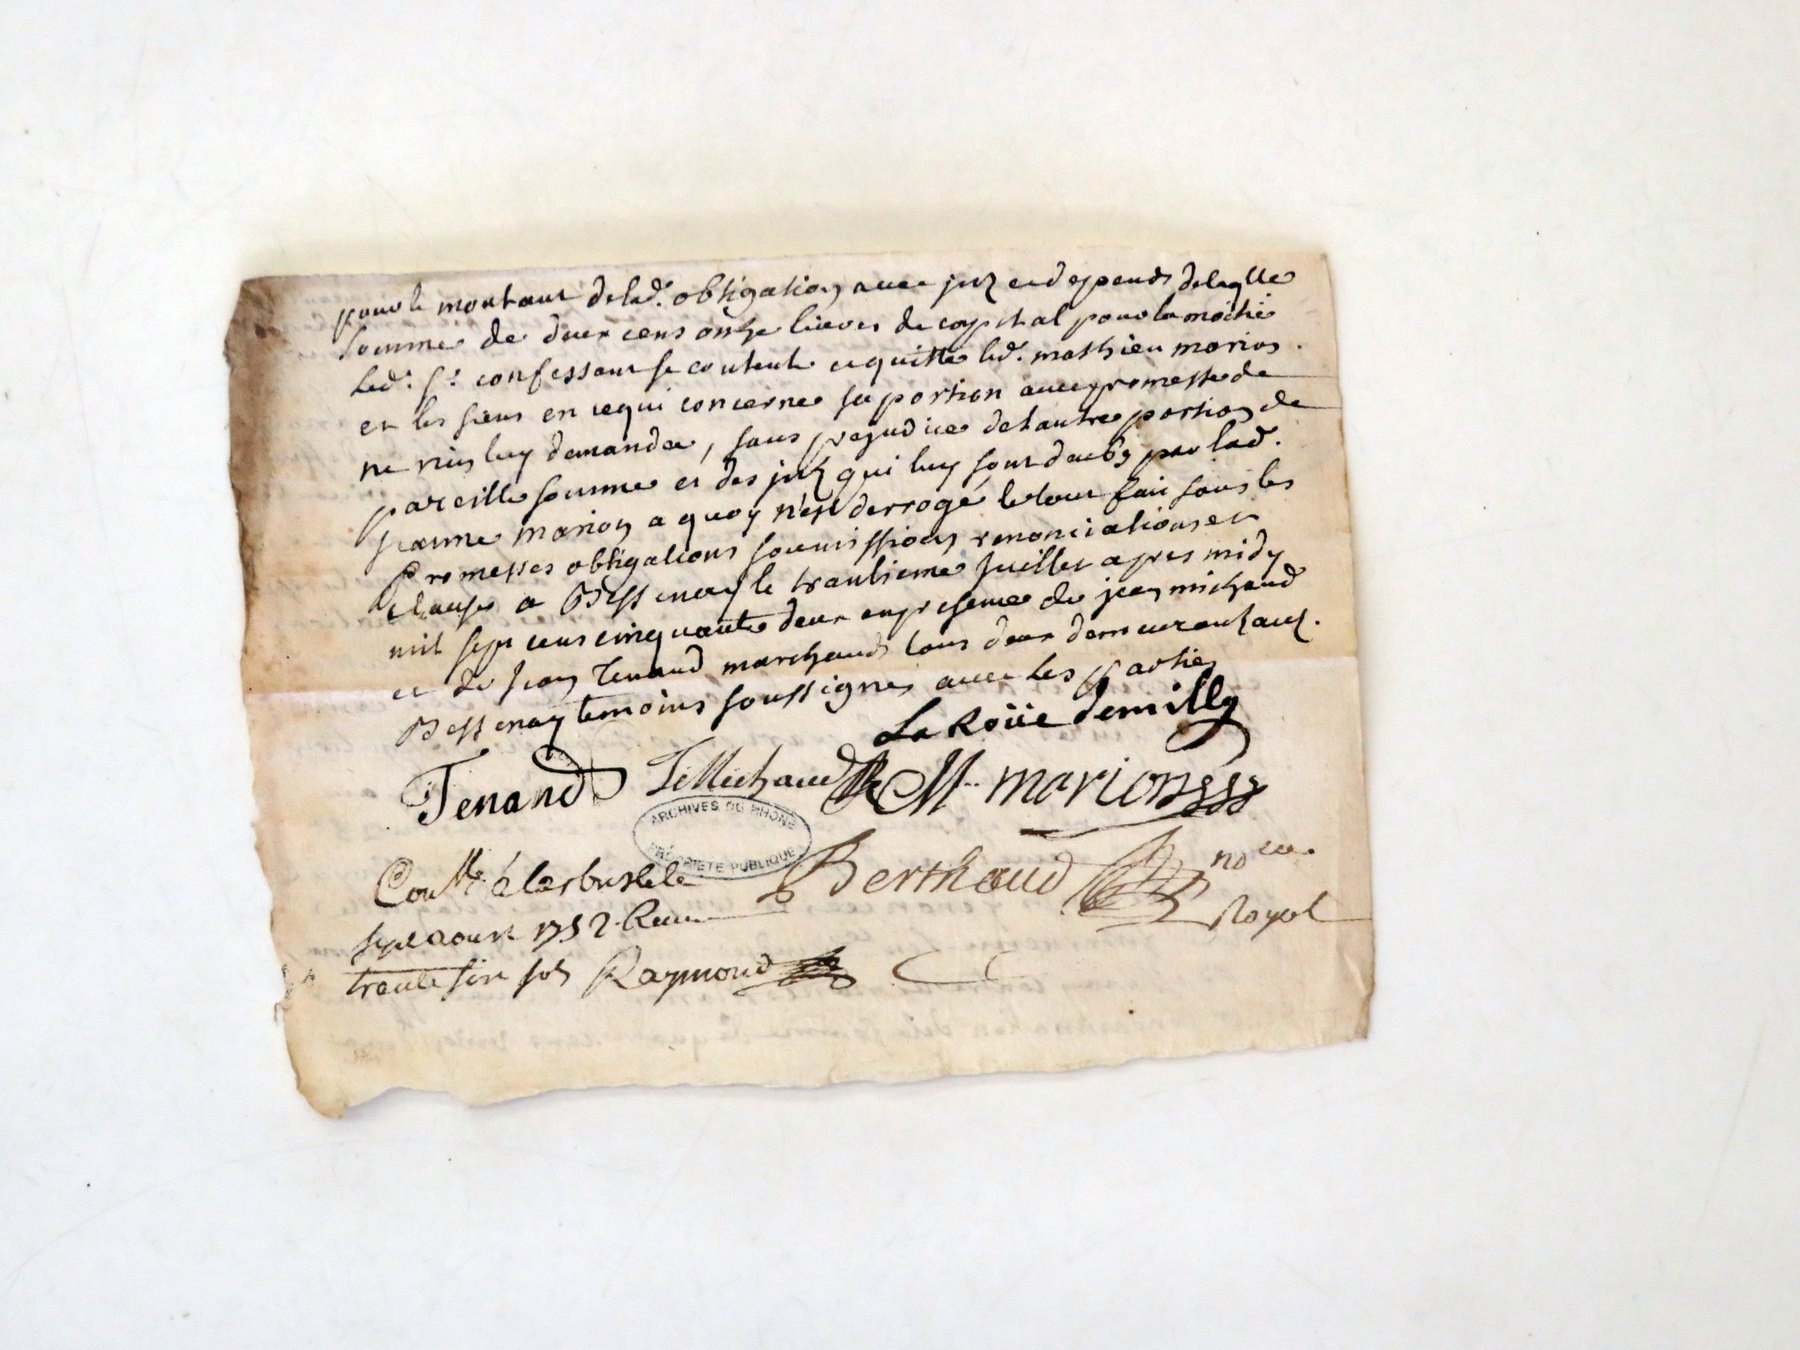 pour le montant de lad. obligation avec jnt. et depends delaqlle
somme de deux cens onze livres de capital pour la moitié
led. Sr. confessant se contente et quitte led. mathieu marion
et les siens en ce qui concerne sa portion avec promesse de
ne rien luy demander, sans prejudice de l autre portion de
pareille somme et des jnt. qui luy sont deubs par lad.
jeanne marion a quoy n'est derrogé le tout fait sous les
Promesses obligations soumissions renonciations et
clauses a Bessenay le trantieme Juillet apres midy
mil sept cens cinquante deux en presence de jean michaud
et de jean Tenand marchands tous deux demeurants aud.
Bessenay temoins soussignes avec les parties
La Roüe demilly
Tenand J Michaud M. marion
ARCHIVES DU RHÔNE
PROPRIETE PUBLIQUE
Berthaud nore
Royal
Conlle a larbresle le
sept aoust 1752. Recu
trente six sols Raymond